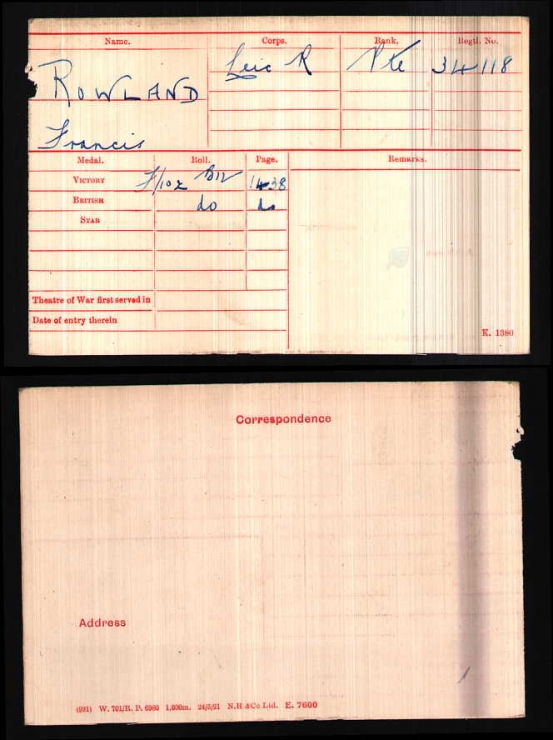 Name. Corps. Rank. Regtl. No.
ROWLAND Leic R Pte 34118
Francis
Medal. Roll. Page. Remarks.
VICTORY F/102 B12 1438
BRITISH do do
STAR
Theatre of War first served in
Date of entry therein
K. 1380
Correspondence
Address
(991) W. 701/R. P. 6980 1,000m. 24/5/21 N.H &Co Ltd. E. 7600